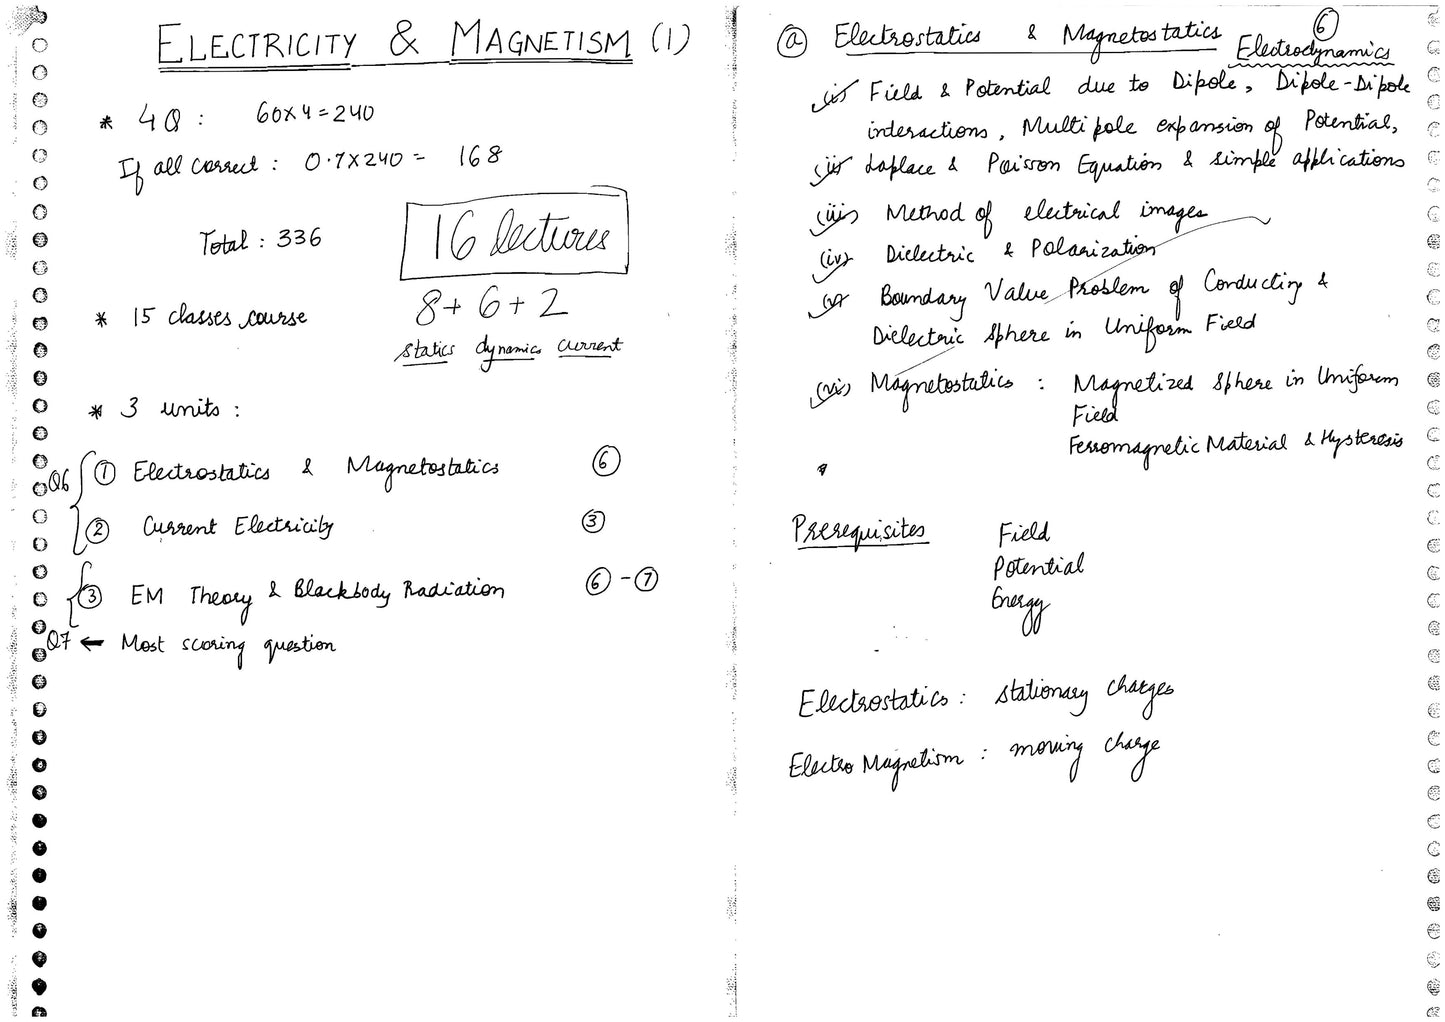 ELECTRICITY & MAGNETISM (1)
* 4Q : 60x4=240
If all correct : 0.7x240 = 168
Total : 336
16 lectures
8+ 6+ 2
statics dynamics current
* 15 classes course
* 3 units :
Q6
① Electrostatics & Magnetostatics ⑥
② Current Electricity ③
③ EM Theory & Blackbody Radiation ⑥ - ⑦
Q7 ← Most scoring question
ⓐ Electrostatics & Magnetostatics ⑥
Electrodynamics
(i) Field & Potential due to Dipole, Dipole-Dipole
interactions, Multipole expansion of Potential,
(ii) Laplace & Poisson Equation & simple applications
(iii) Method of electrical images
(iv) Dielectric & Polarization
(v) Boundary Value Problem of Conducting &
Dielectric Sphere in Uniform Field
(vi) Magnetostatics : Magnetized Sphere in Uniform
Field
Ferromagnetic Material & Hysteresis
Prerequisites Field
Potential
Energy
Electrostatics : stationary charges
Electro Magnetism : moving charge